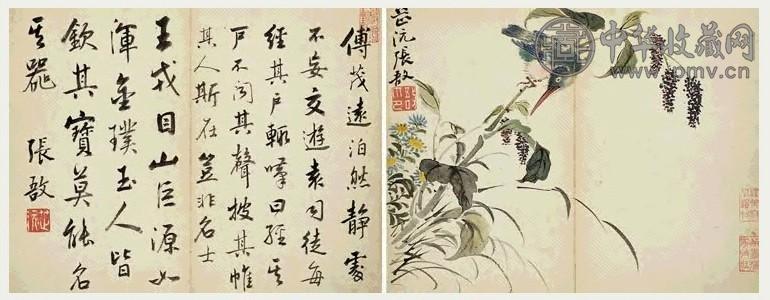 傅茂遠泊然靜處
不妄交遊袁司徒每
經其戶輒嘆曰經其
戶不聞其聲披其帷
其人斯在豈非名士
王戎目山巨源如
渾金璞玉人皆
欽其寶莫能名
其器 張敔
芷沅張敔
中华收藏网
www.pmv.cn